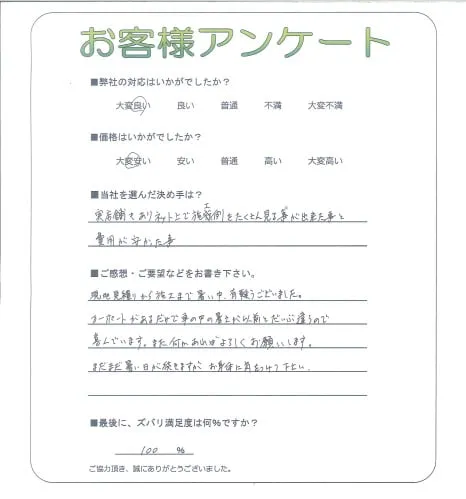 お客様アンケート
■弊社の対応はいかがでしたか？
大変良い 良い 普通 不満 大変不満
■価格はいかがでしたか？
大変安い 安い 普通 高い 大変高い
■当社を選んだ決め手は？
実店舗もありネット上で施工例をたくさん見る事が出来た事と
費用が安かった事
■ご感想・ご要望などをお書き下さい。
現地見積りから施工まで暑い中、有難うございました。
カーポートがあるだけで車の中の暑さが以前とだいぶ違うので
喜んでいます。また何かあればよろしくお願いします。
まだまだ暑い日が続きますが お身体に気をつけて下さい。
■最後に、ズバリ満足度は何%ですか？
100 %
ご協力頂き、誠にありがとうございました。